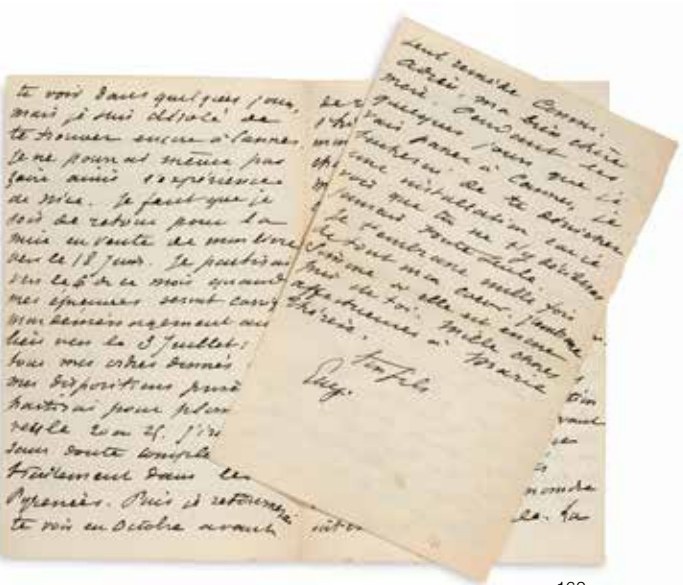 te voir dans quelques jours,
mais je suis désolé de
te trouver encore à Cannes
Je ne pourrai même pas
faire ainsi l'expérience
de Nice. Il faut que je
sois de retour pour la
mise en vente de mon livre
vers le 18 Juin. Je partirai
vers le 6 de ce mois quand
mes épreuves seront
mon déménagement au
lieu vers le 3 Juillet;
tous mes ordres donnés
mes dispositions
partirai pour
vers le 20 ou 25.
sans doute
traitement dans les
Pyrénées. Puis je retournerai
te voir en Octobre avant
seul remède connu.
Adieu, ma bien chère
mère. Pendant les
quelques jours que je
vais passer à Cannes, je
tâcherai de te dénicher
une installation car je
vois que tu ne t'y décideras
jamais toute seule
Je t'embrasse mille fois
de tout mon coeur. J'embrasse
Simone si elle est encore
près de toi. Mille choses
affectueuses à Marie
Thérèse.
ton fils
Guy.